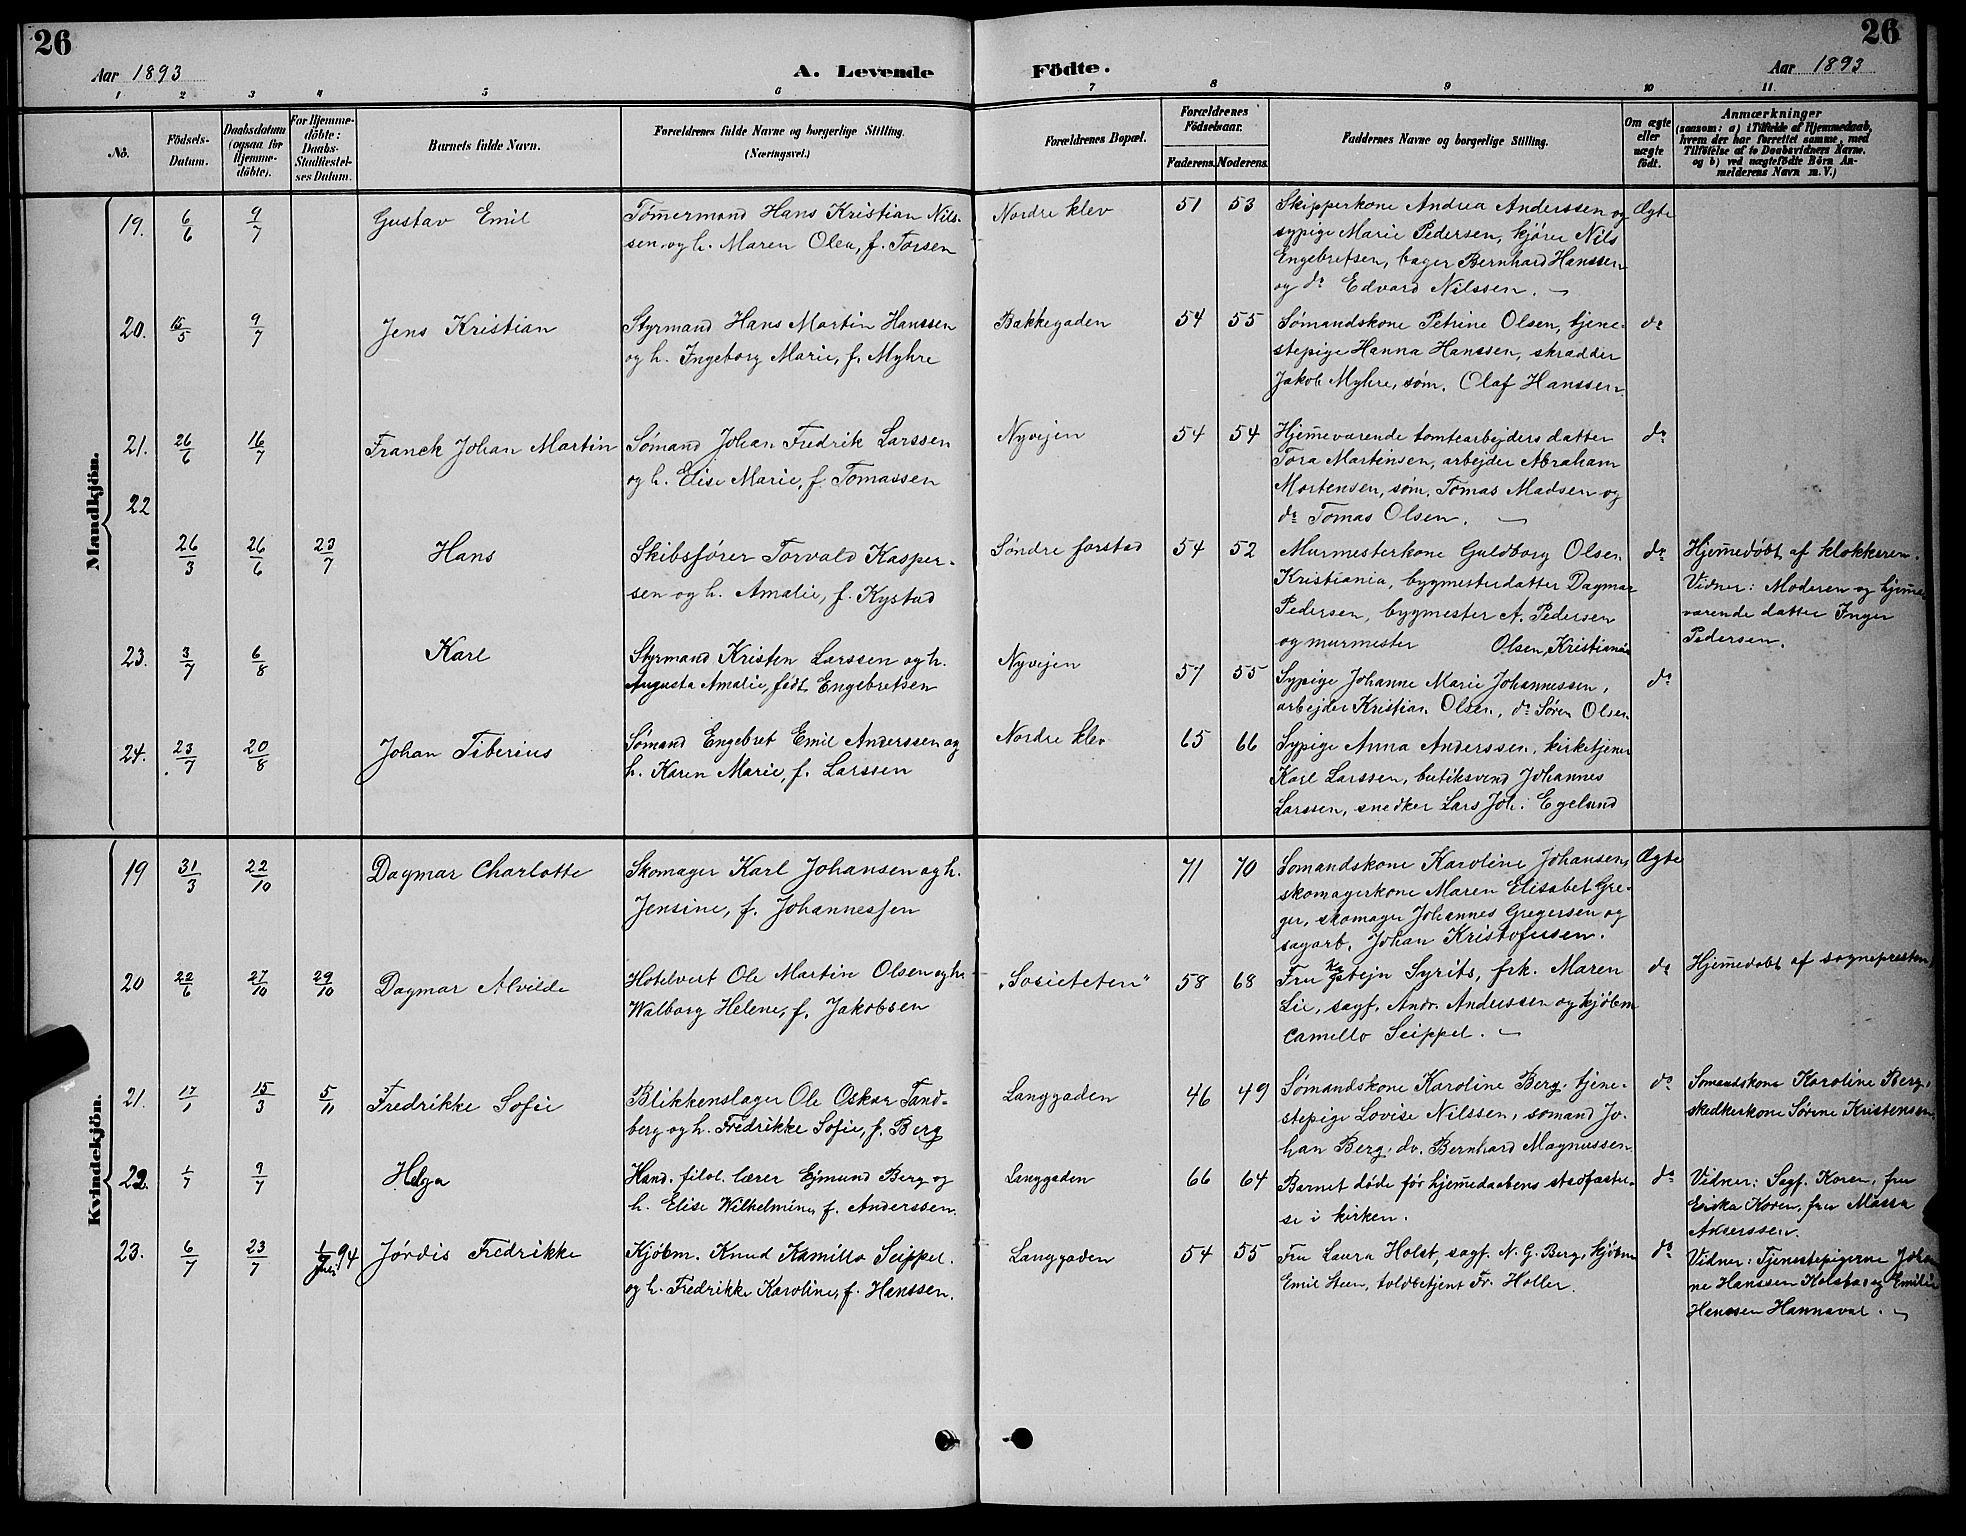 26
26
Aar 1893
A. Levende
Födte.
Aar 1893
1 2 3 4 5 6 7 8 9 10 11
No.
Födsels-
Datum.
Daabsdatum
(ogsaa for
Hjemme-
döbte).
For Hjemme-
döbte:
Daabs-
Stadfæstel-
ses Datum.
Barnets fulde Navn.
Forældrenes fulde Navne og borgerlige Stilling.
(Næringsvei.)
Forældrenes Bopæl.
Forældrenes
Födselsaar.
Faderens. Moderens.
Faddernes Navne og borgerlige Stilling.
Om ægte
eller
uægte
födt.
Anmærkninger
(saasom: a) i Tilfælde af Hjemmedaab,
hvem der har forrettet samme, med
Tilföielse af to Daabsvidners Navne,
og b) ved uægtefödte Börn An-
melderens Navn m. V.)
Mandkjön.
19. 6/6 9/7 Gustav Emil
Tömermand Hans Kristian Nils-
sen og h. Maren Olea, f. Torsen
Nordre klev 51 53
Skipperkone Andrea Anderssen og
sypige Marie Pedersen, kjører Nils
Engebretsen, bager Bernhard Hanssen
og do Edvard Nilssen.
Ægte
20. 15/5 9/7 Jens Kristian
Styrmand Hans Martin Hanssen
og h. Ingeborg Marie, f. Myhre
Bakkegaden 54 55
Sømandskone Petrine Olsen, tjene-
stepige Hanna Hanssen, skrædder
Jakob Myhre, søm. Olaf Hanssen
do
21. 26/6 16/7 Franck Johan Martin
Sømand Johan Fredrik Larssen
og h. Elise Marie, f. Tomassen
Nyvejen 54 54
Hjemeværende tomtearbejders datter
Tora Martinsen, arbejder Abraham
Mortensen, søm. Tomas Madsen og
do Tomas Olsen.
do
22
26/3 26/6 23/7 Hans
Skibsfører Torvald Kasper-
sen og h. Amalie, f. Kystad
Søndre forstad 54 52
Murmesterkone Guldborg Olsen
Kristiania, bygmesterdatter Dagmar
Pedersen, bygmester A. Pedersen
og murmester Olsen, Kristiania
do
Hjemedøbt af klokkeren.
Vidner: Moderen og hjeme-
værende datter Inger
Pedersen.
23. 3/7 6/8 Karl
Styrmand Kristen Larssen og h.
Augusta Amalie, født Engebretsen
Nyvejen 57 55
Sypige Johanne Marie Johannessen,
arbejder Kristian Olsen, do Søren Olsen
do
24. 23/7 20/8 Johan Tiberius
Sømand Engebret Emil Anderssen og
h. Karen Marie, f. Larssen
Nordre klev 65 66
Sypige Anna Anderssen, kirketjener
Karl Larssen, butiksvend Johannes
Larssen, snedker Lars Joh. Egelund
Kvindekjön.
19 31/3 22/10 Dagmar Charlotte
Skomager Karl Johansen og h.
Jensine, f. Johannessen
71 70
Somandskone Karoline Johansen,
skomagerkone Maren Elisabet Gre-
ger, skomager Johannes Gregersen og
sagarb. Johan Kristofersen.
Ægte
20 22/6 27/10 29/10 Dagmar Alvilde
Hotelvert Ole Martin Olsen og h.
Walborg Helene, f. Jakobsen
„Societeten" 58 68
Fru Syrits, frk. Maren
Lie, sagf. Andr. Anderssen og kjøbm
Camillo Seippel.
do
Hjemedøbt af sognepresten
21. 17/1 15/3 5/11 Fredrikke Sofie
Blikkenslager Ole Oskar Tand-
berg og h. Fredrikke Sofie, f. Berg
Langgaden 46 49
Sømandskone Karoline Berg, tjene-
stepige Lovise Nilssen, sømand Jo-
han Berg, do. Bernhard Magnussen
do
Sømandskone Karoline Berg,
skedkerkone Sørine Kristensen
22. 1/7 9/7 Helga
Kand. filol. lærer Ejmund Berg og
h. Elise Wilhelmine, f. Anderssen.
Langgaden 66 64
Barnet døde før hjemedaabens stadfæstel-
se i kirken.
do
Vidner: Sagf. Koren, fru
Erika Koren, fru Massa
Anderssen.
23. 6/7 23/7 94 Jørdis Fredrikke
Kjøbm. Knud Kamillo Seippel.
og h. Fredrikke Karoline, f. Hanssen.
Langgaden 54 55
Fru Laura Holst, sagf. N. G. Berg, kjøbm
Emil Steen, toldbetjent Fr. Holler.
do
Vidner: Tjenestepigerne Johan
ne Hanssen Kolstad og Emilie
Hanssen Hannaval.